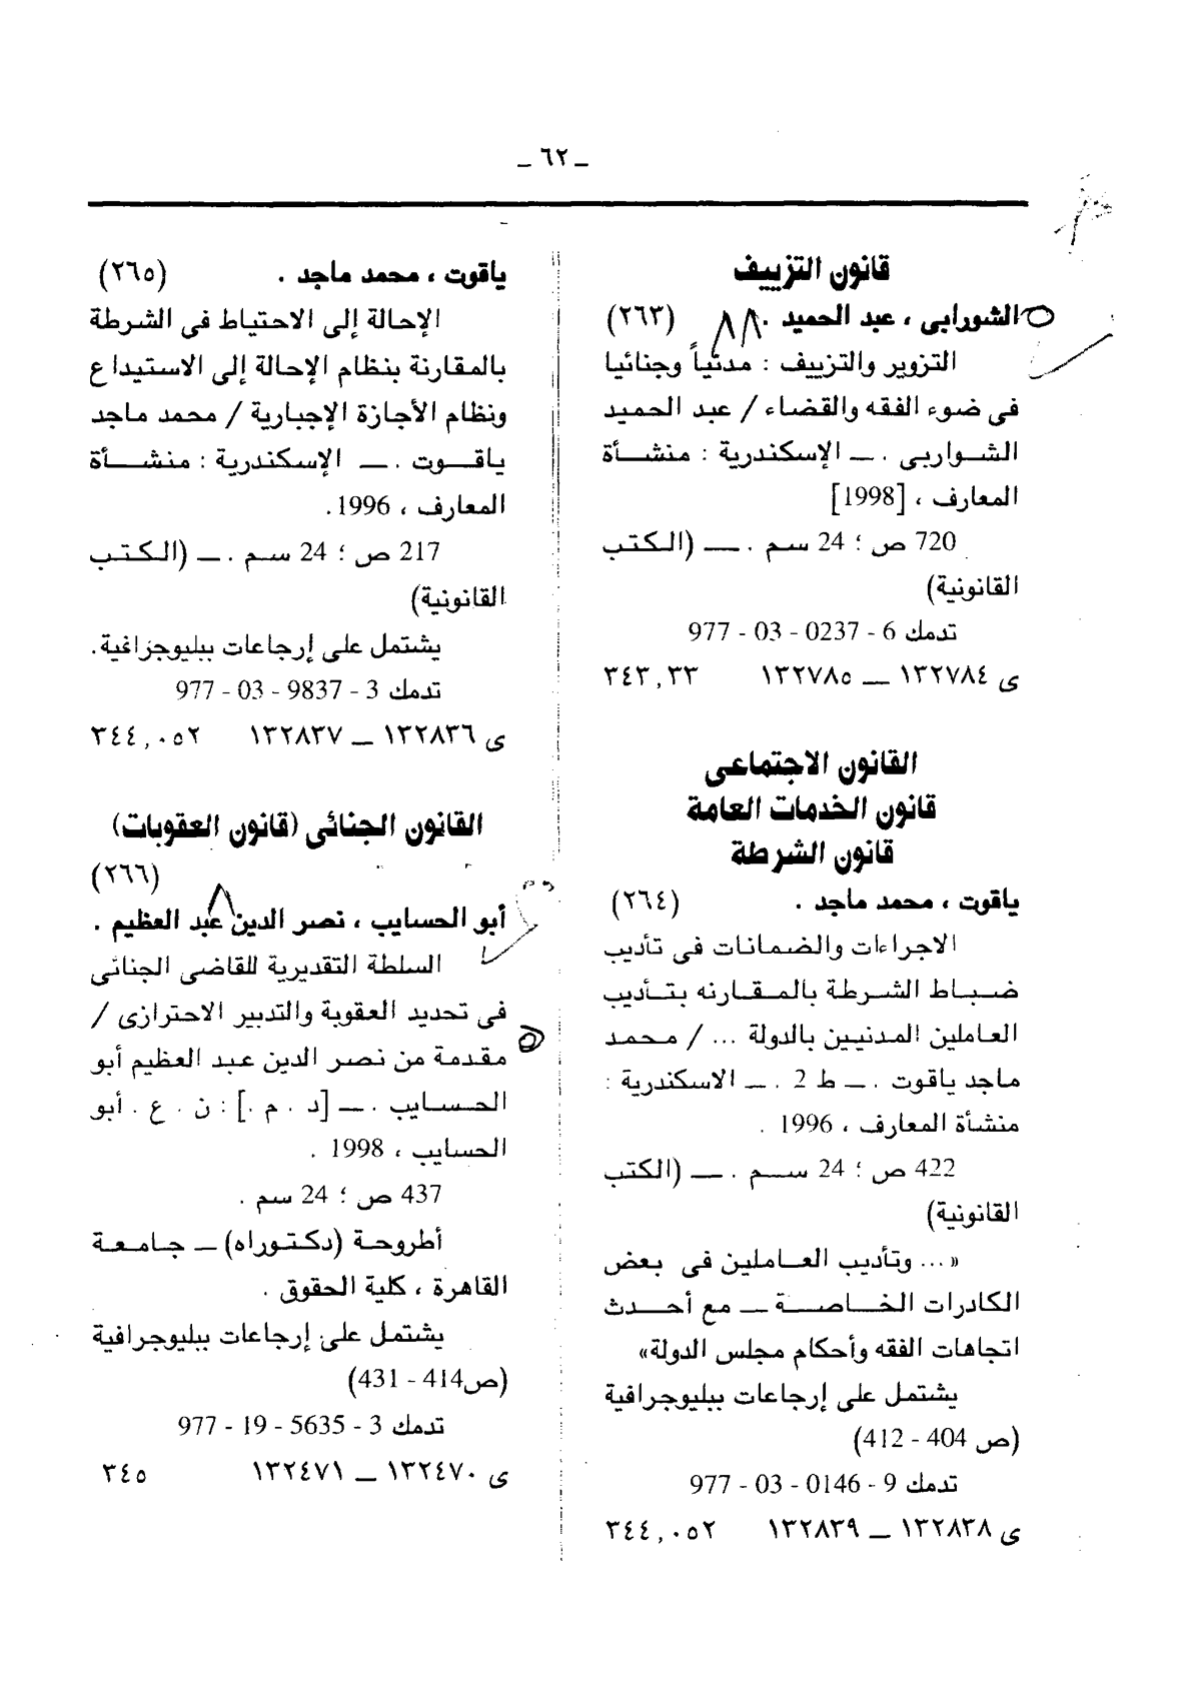 ـ ٦٢ ـ
قانون التزييف
الشورابى ، عبد الحميد . ٨٨ (٢٦٣)
التزوير والتزييف : مدنياً وجنائيا
فى ضوء الفقه والقضاء / عبد الحميد
الشواربى . ــ الإسكندرية : منشأة
المعارف ، [1998]
720 ص ؛ 24 سم . ــ (الكتب
القانونية)
تدمك 6 - 0237 - 03 - 977
ى ١٣٢٧٨٤ ــ ١٣٢٧٨٥ ٣٤٣,٣٣
القانون الاجتماعى
قانون الخدمات العامة
قانون الشرطة
ياقوت ، محمد ماجد . (٢٦٤)
الاجراءات والضمانات فى تأديب
ضباط الشرطة بالمقارنه بتأديب
العاملين المدنيين بالدولة ... / محمد
ماجد ياقوت . ــ ط 2 . ــ الاسكندرية :
منشأة المعارف ، 1996 .
422 ص ؛ 24 سم . ــ (الكتب
القانونية)
« ... وتأديب العاملين فى بعض
الكادرات الخاصة ــ مع أحدث
اتجاهات الفقه وأحكام مجلس الدولة»
يشتمل على إرجاعات ببليوجرافية
(ص 404 - 412)
تدمك 9 - 0146 - 03 - 977
ى ١٣٢٨٣٨ ــ ١٣٢٨٣٩ ٣٤٤,٠٥٢
ياقوت ، محمد ماجد . (٢٦٥)
الإحالة إلى الاحتياط فى الشرطة
بالمقارنة بنظام الإحالة إلى الاستيداع
ونظام الأجازة الإجبارية / محمد ماجد
ياقوت . ــ الإسكندرية : منشأة
المعارف ، 1996.
217 ص ؛ 24 سم . ــ (الكتب
القانونية)
يشتمل على إرجاعات ببليوجزافية.
تدمك 3 - 9837 - 03 - 977
ى ١٣٢٨٣٦ ــ ١٣٢٨٣٧ ٣٤٤,٠٥٢
القانون الجنائى (قانون العقوبات)
(٢٦٦)
أبو الحسايب ، نصر الدين عبد العظيم .
السلطة التقديرية للقاضى الجنائى
فى تحديد العقوبة والتدبير الاحترازى /
مقدمة من نصر الدين عبد العظيم أبو
الحسايب . ــ [د . م .] : ن . ع . أبو
الحسايب ، 1998 .
437 ص ؛ 24 سم .
أطروحة (دكتوراه) ــ جامعة
القاهرة ، كلية الحقوق .
يشتمل على إرجاعات ببليوجرافية
(ص414 - 431)
تدمك 3 - 5635 - 19 - 977
ى ١٣٢٤٧٠ ــ ١٣٢٤٧١ ٣٤٥